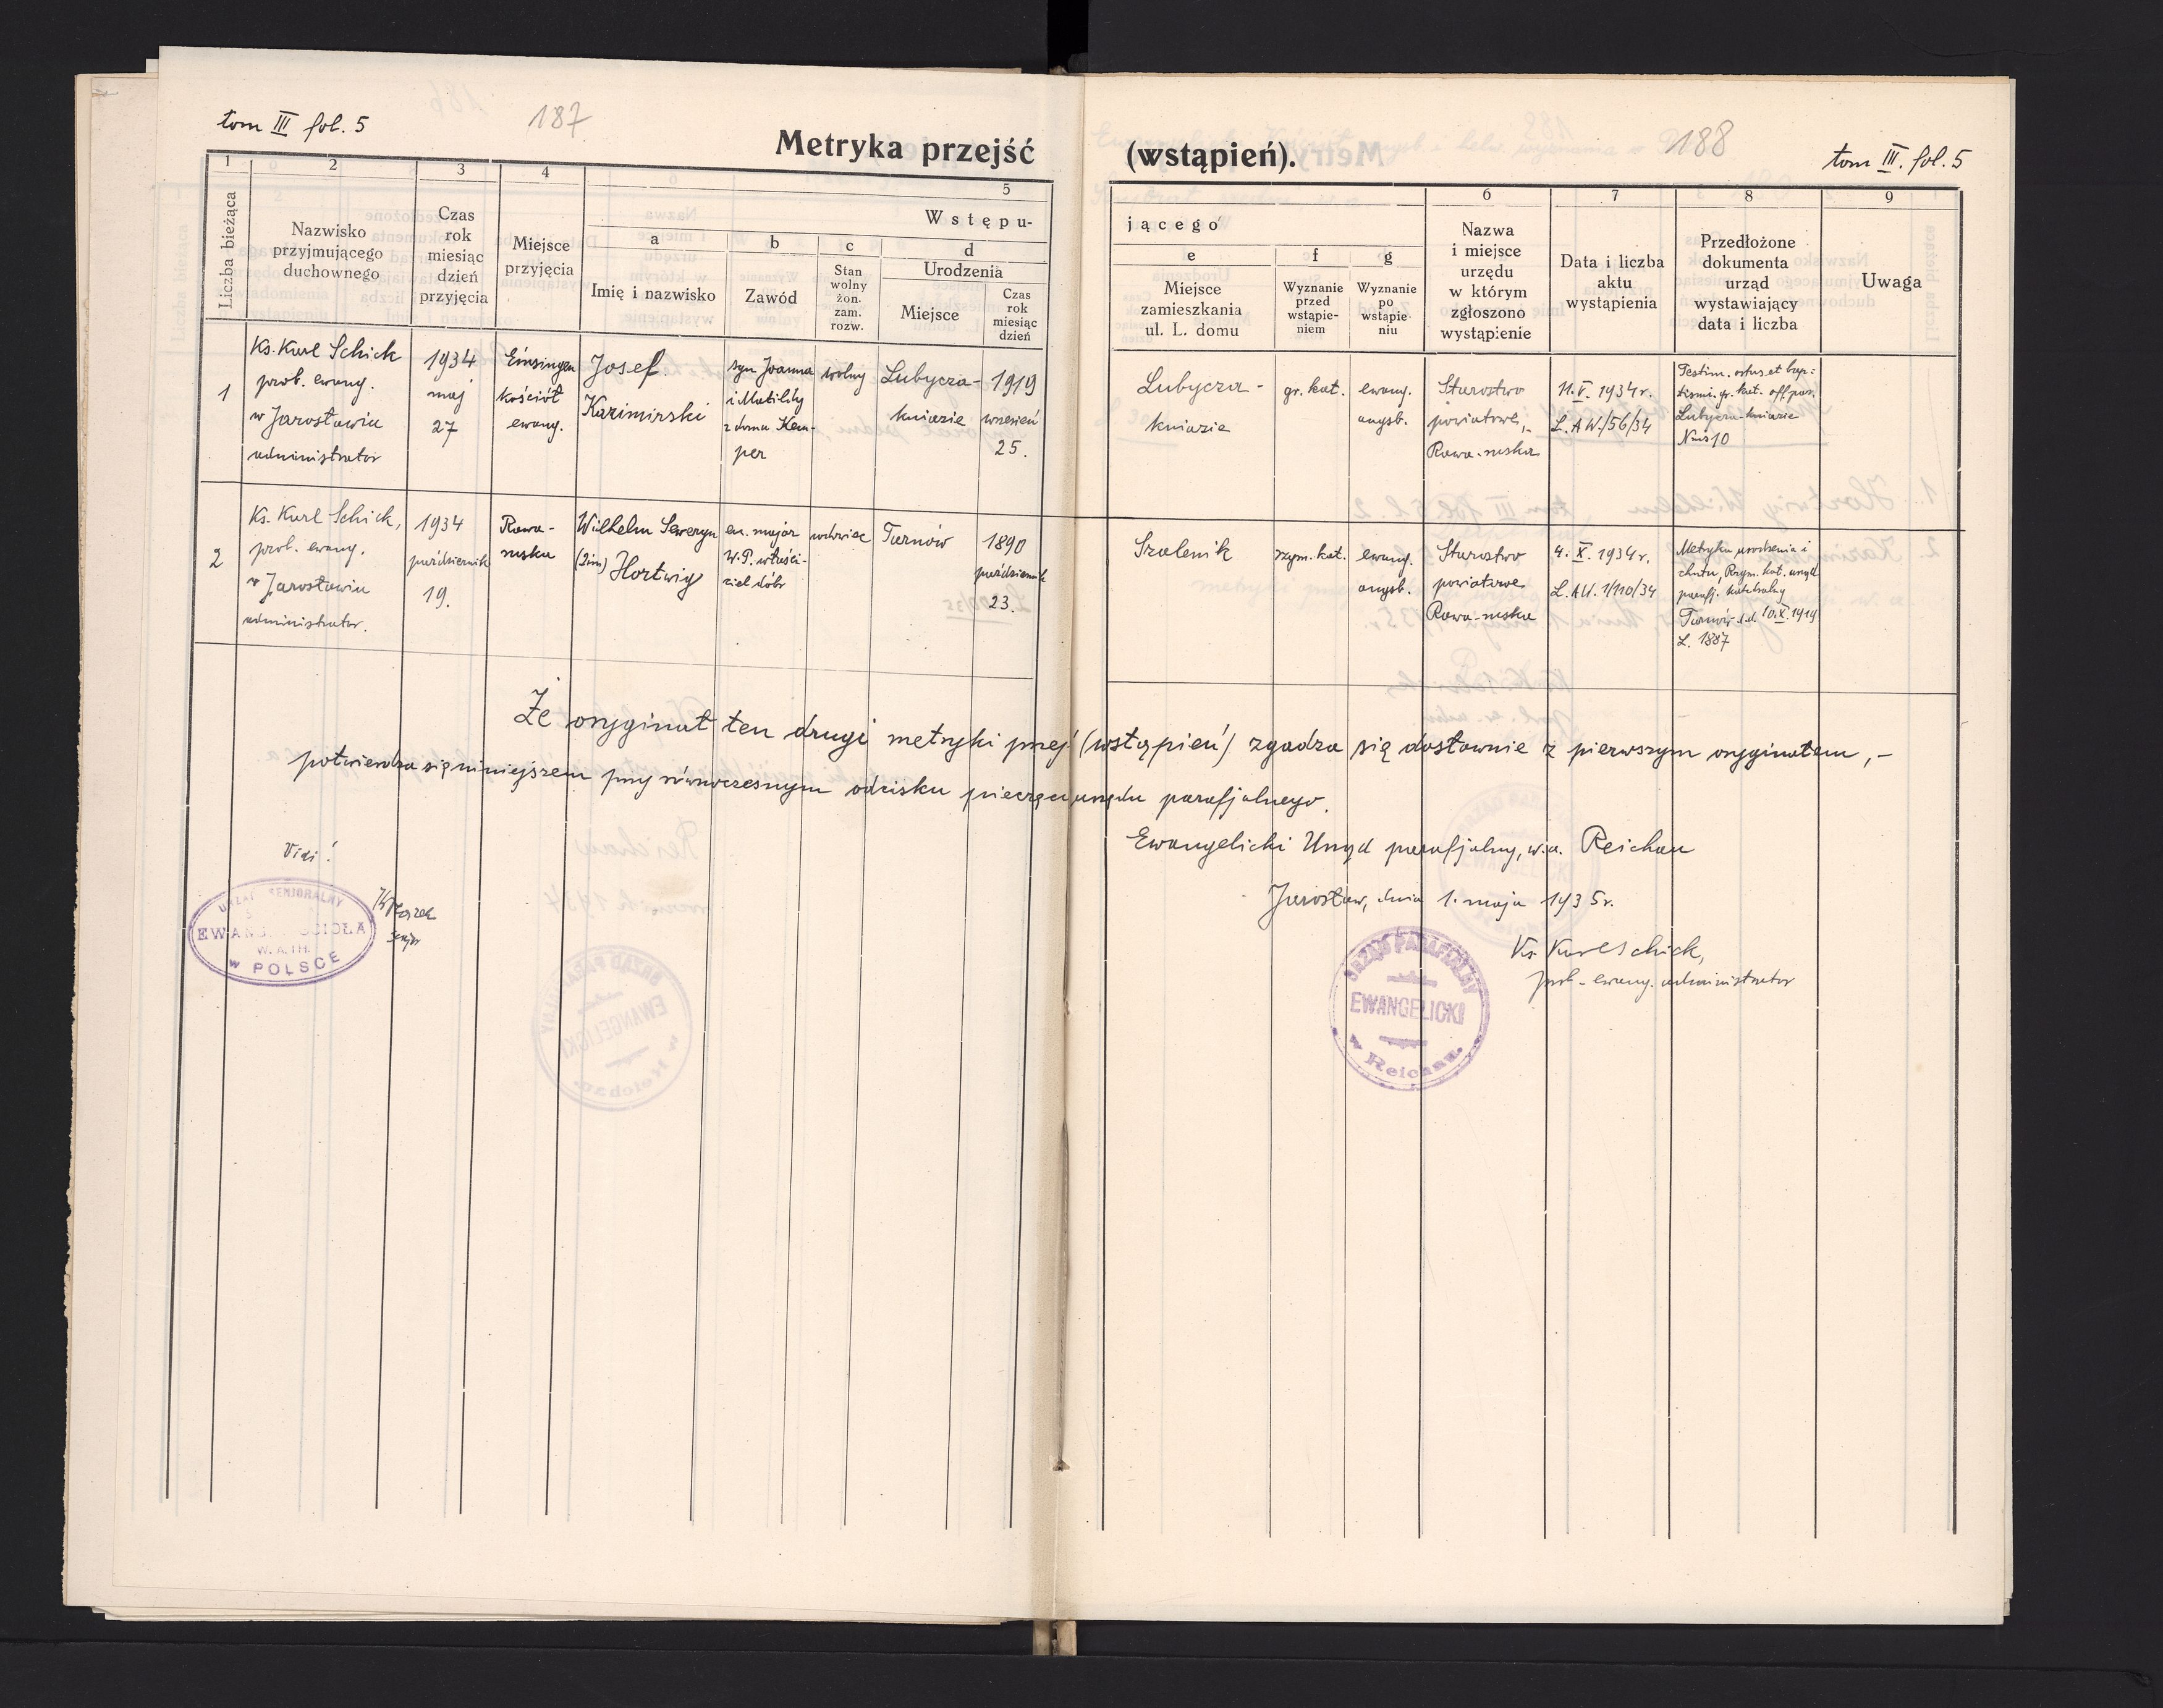 tom III fol. 5
187
188
tom III. fol. 5
Metryka przejść (wstąpień).
1 2 3 4 5 6 7 8 9
Liczba bieżąca
Nazwisko
przyjmującego
duchownego
Czas
rok
miesiąc
dzień
przyjęcia
Miejsce
przyjęcia
Wstępu-
jącego
a
Imię i nazwisko
b
Zawód
c
Stan
wolny
żon.
zam.
rozw.
d
Urodzenia
Miejsce
Czas
rok
miesiąc
dzień
e
Miejsce
zamieszkania
ul. L. domu
f
Wyznanie
przed
wstąpie-
niem
g
Wyznanie
po
wstąpie-
niu
Nazwa
i miejsce
urzędu
w którym
zgłoszono
wystąpienie
Data i liczba
aktu
wystąpienia
Przedłożone
dokumenta
urząd
wystawiający
data i liczba
Uwaga
1
Ks. Karl Schick
prob. ewang.
w Jarosławiu
administrator
1934
maj
27
Einsingen
kościół
ewang.
Josef
Kazimirski
syn Joanna
i Matildy
z domu Kem-
per
wolny
Lubycza-
kniazie
1919
wrzesień
25.
Lubycza-
kniazie
gr. kat.
ewang.
augsb.
Starostwo
powiatowe,-
Rawa-ruska
11. V. 1934 r.
L. AW./56/34
Testim. ortus et bap-
tismi. gr. kat. off. par.
Lubycza-kniazie
Nus 10
2
Ks. Karl Schick,
prob. ewang.
w Jarosławiu
administrator.
1934
październik
19.
Rawa-
ruska
Wilhelm Seweryn
(2im) Hortwig
em. major
W.P. właści-
ciel dóbr
wdowiec
Tarnów
1890
październik
23.
Szalenik
rzym. kat.
ewang.
augsb.
Starostwo
powiatowe
Rawa-ruska
4. X. 1934 r.
L. AW. 1/110/34
Metryka urodzenia i
chrztu, Rzym. kat. urząd
parafj. katedralny
Tarnów d.d. 10.X. 1919
L. 1887
Że oryginał ten drugi metryki przejś (wstąpień) zgadza się dosłownie z pierwszym oryginałem,-
potwierdza się niniejszem przy równoczesnym odcisku pieczęci urzędu parafjalnego.
Ewangelicki Urząd parafjalny, w.a. Reichau
Jarosław, dnia 1. maja 1935 r.
Ks. Karl Schick,
prob. ewang. administrator
Vidi!
Senjor
URZĄD SENJORALNY
EWANG. KOŚCIOŁA
W. A. I H.
w POLSCE
URZĄD PARAFJALNY
EWANGELICKI
w Reichau.